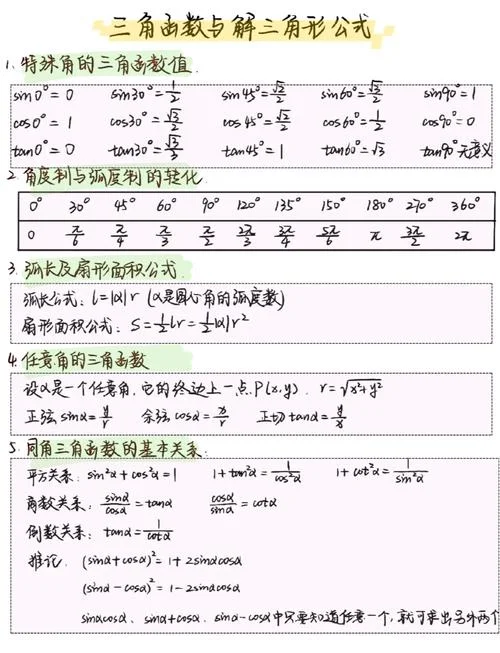 三角函数与解三角形公式
1. 特殊角的三角函数值
sin0°=0 sin30°=1/2 sin45°=√2/2 sin60°=√3/2 sin90°=1
cos0°=1 cos30°=√3/2 cos45°=√2/2 cos60°=1/2 cos90°=0
tan0°=0 tan30°=√3/3 tan45°=1 tan60°=√3 tan90°无意义
2. 角度制与弧度制的转化
0° 30° 45° 60° 90° 120° 135° 150° 180° 270° 360°
0 π/6 π/4 π/3 π/2 2π/3 3π/4 5π/6 π 3π/2 2π
3. 弧长及扇形面积公式
弧长公式: l=|α|r (α是圆心角的弧度数)
扇形面积公式: S=1/2lr=1/2|α|r²
4. 任意角的三角函数
设α是一个任意角,它的终边上一点P(x,y), r=√(x²+y²)
正弦sinα=y/r 余弦cosα=x/r 正切tanα=y/x
5. 同角三角函数的基本关系
平方关系: sin²α+cos²α=1 1+tan²α=1/cos²α 1+cot²α=1/sin²α
商数关系: sinα/cosα=tanα cosα/sinα=cotα
倒数关系: tanα=1/cotα
推论: (sinα+cosα)²=1+2sinαcosα
(sinα-cosα)²=1-2sinαcosα
sinαcosα、sinα+cosα、sinα-cosα中只要知道任意一个,就可求出另外两个